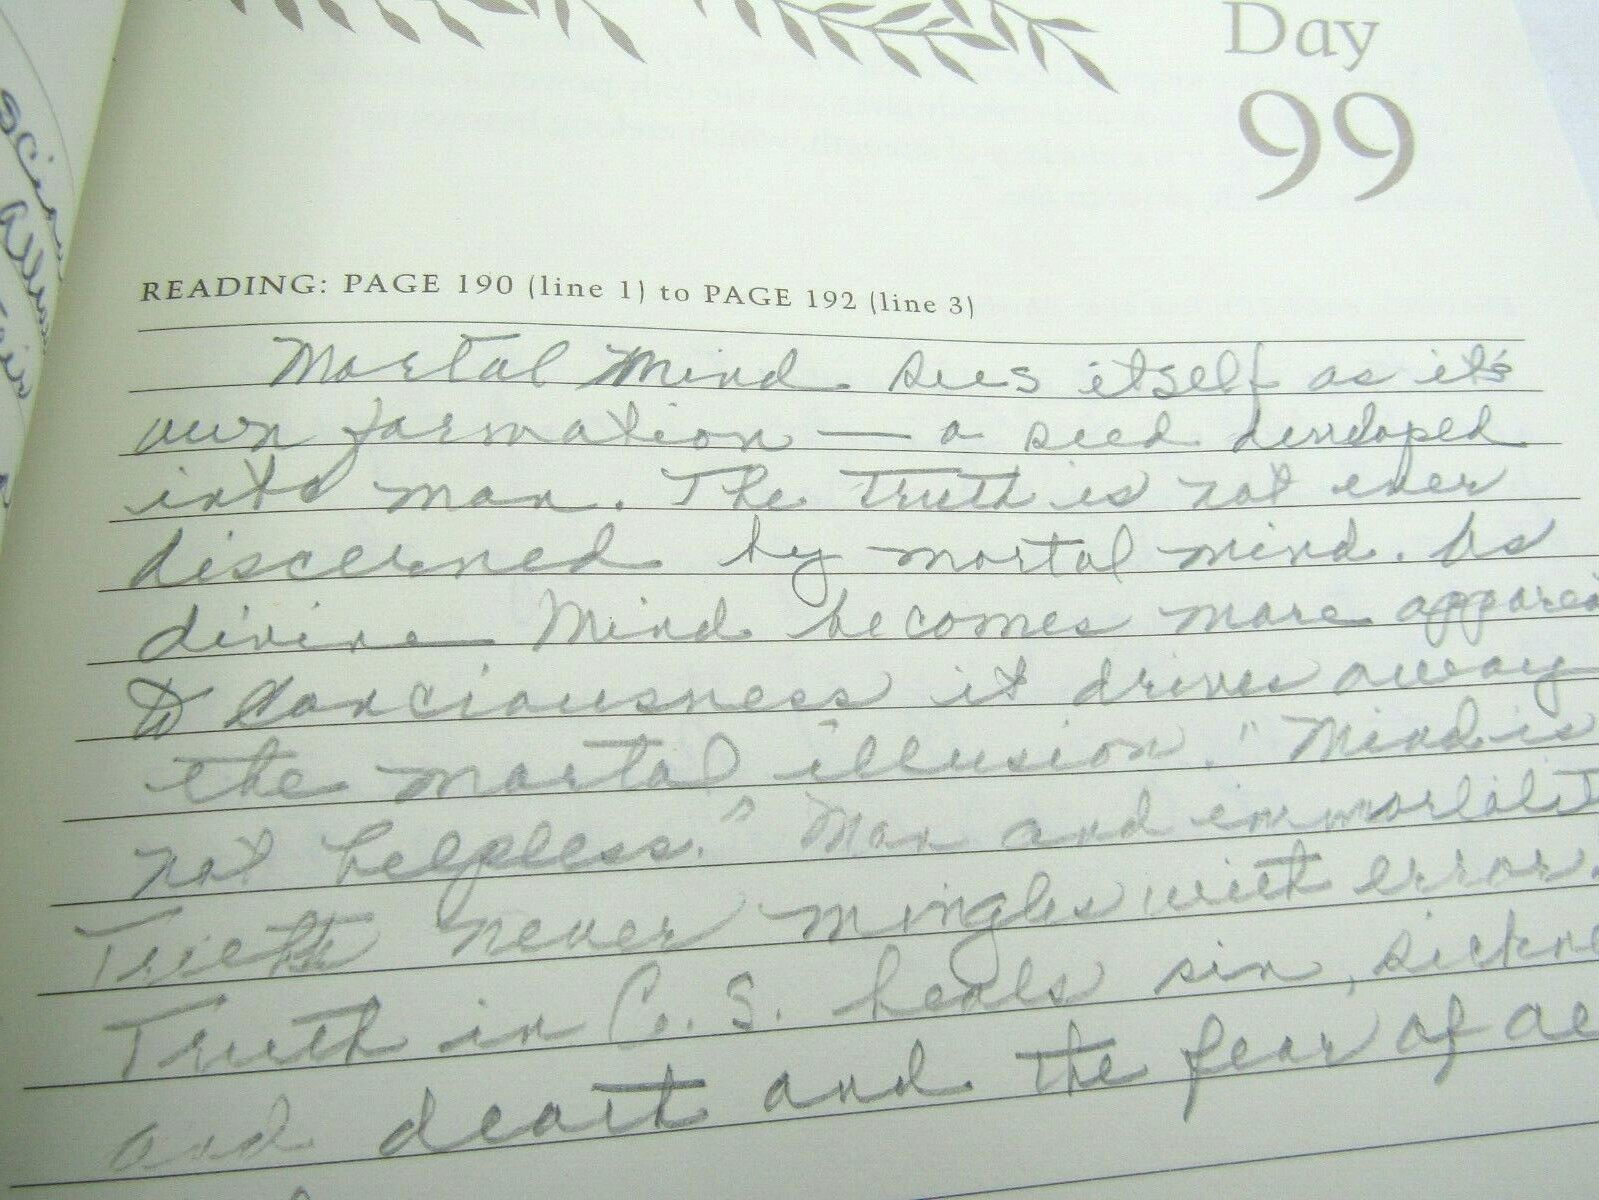 Day
99
READING: PAGE 190 (line 1) to PAGE 192 (line 3)
Mortal Mind sees itself as it's
own formation — a seed developed
into man. The Truth is not ever
discerned by mortal mind. As
divine Mind becomes more
to consciousness it drives away
the mortal illusion. "Mind is
not helpless." Man and
Truth never mingles with error.
Truth in C. S. heals sin,
and death and the fear of